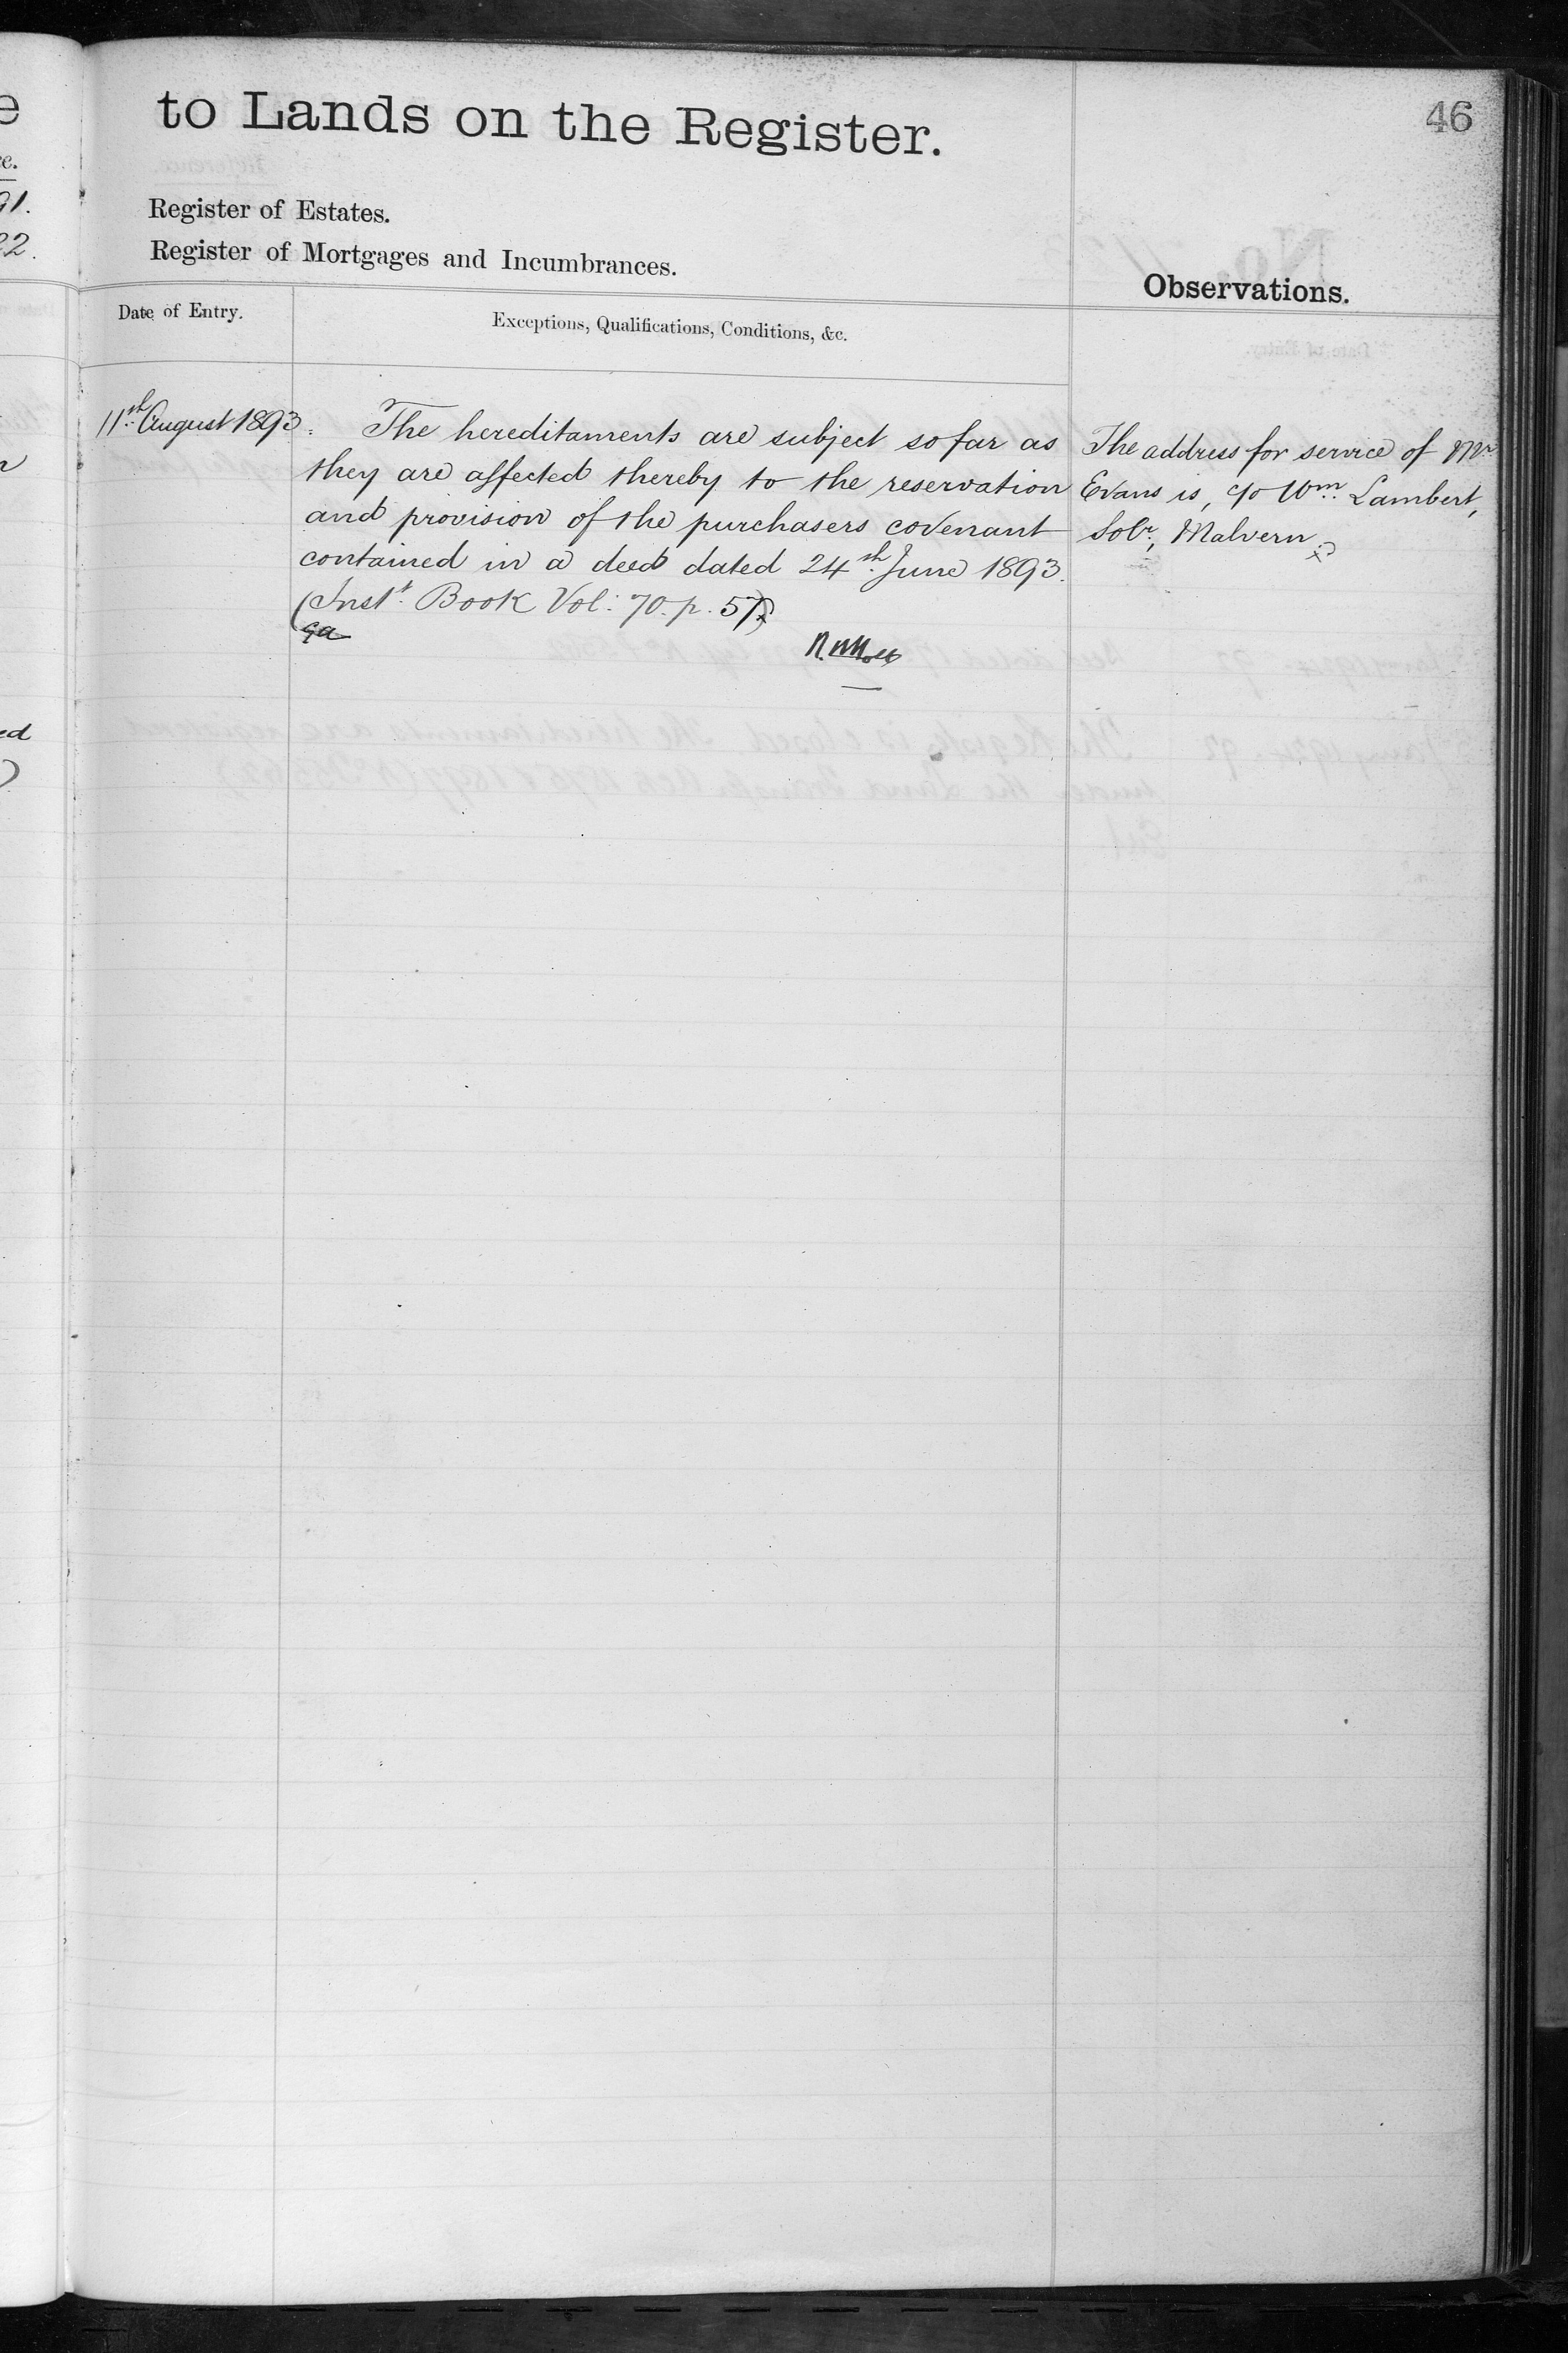 to Lands on the Register.
46
Register of Estates.
Register of Mortgages and Incumbrances.
Observations.
Date of Entry.
Exceptions, Qualifications, Conditions, &c.
11th August 1893.
The hereditaments are subject so far as
they are affected thereby to the reservation
and provision of the purchasers covenant
contained in a deed dated 24th June 1893.
(Inst. Book Vol: 70. p. 57)
The address for service of Mr
Evans is, c/o Wm. Lambert,
Solr, Malvern.